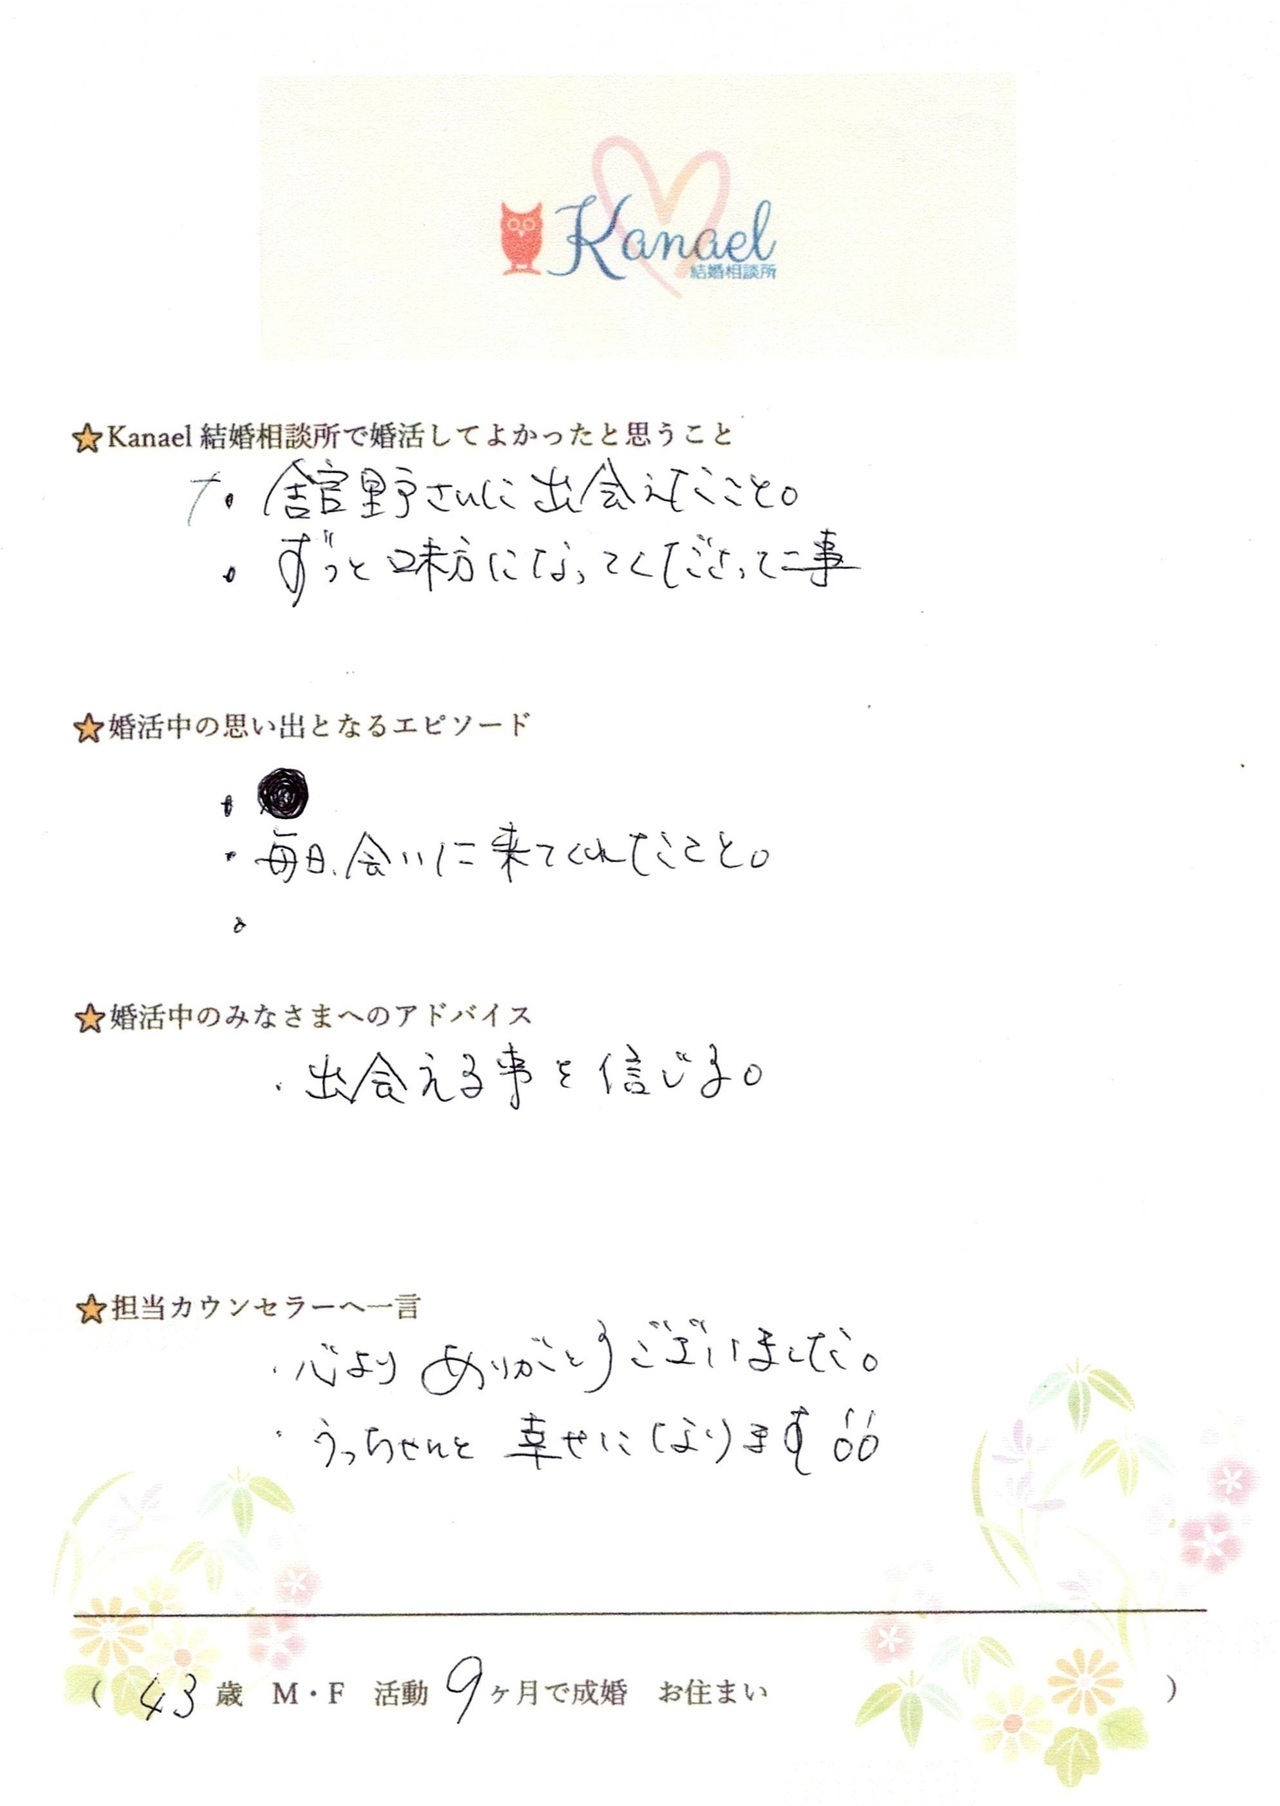 Kanael
結婚相談所
★Kanael 結婚相談所で婚活してよかったと思うこと
・舘野さんに出会えたこと。
・ずっと味方になってくださって事
★婚活中の思い出となるエピソード
・
・毎日、会いに来てくれたこと。
・
★婚活中のみなさまへのアドバイス
・出会える事を信じる。
★担当カウンセラーへ一言
・心よりありがとうございました。
・うっちゃんと幸せになります
( 43歳 M・F 活動9ヶ月で成婚 お住まい )